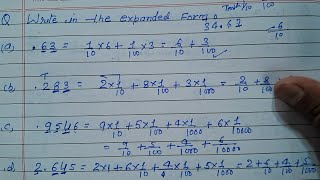 Q Write in the expanded Form.
34.67
(a) .63 = 1/10 x6 + 1/100 x3 = 6/10 + 3/100
(b) .283 = 2x1/10 + 8x1/100 + 3x1/1000 = 2/10 + 8/100
(c) .9546 = 9x1/10 + 5x1/100 + 4x1/1000 + 6x1/10000
= 9/10 + 5/100 + 4/1000 + 6/10000
(d) 2.645 = 2x1 + 6x1/10 + 4x1/100 + 5x1/1000 = 2 + 6/10 + 4/100 + 5